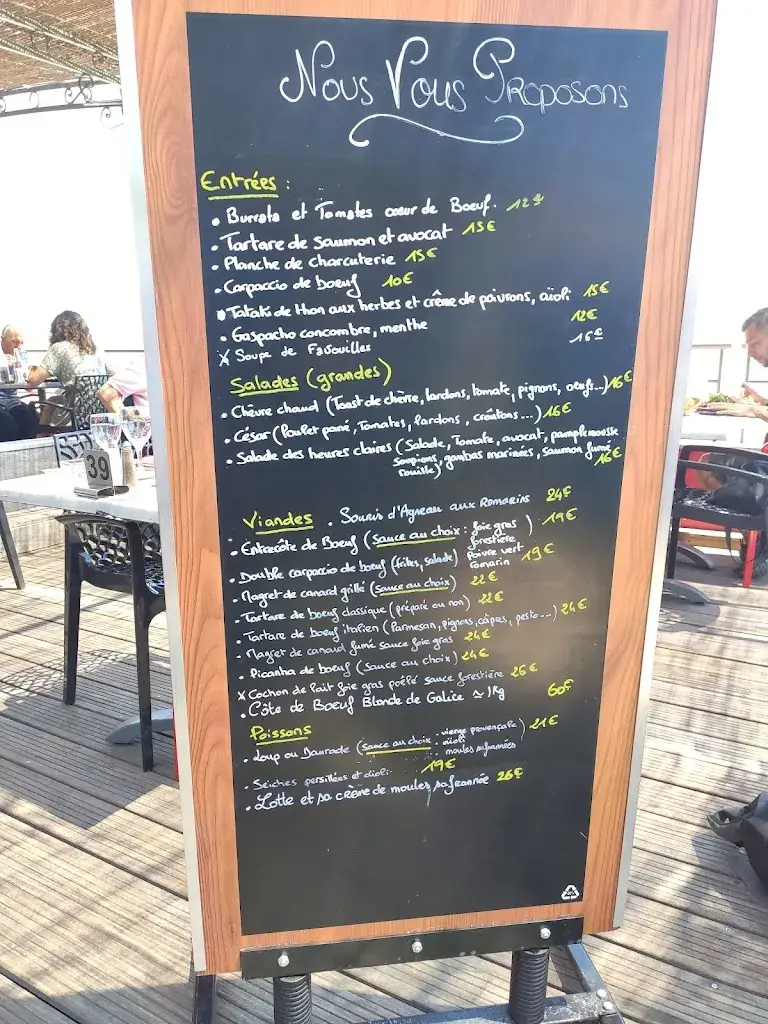 Nous Vous Proposons
Entrées :
• Burrata et Tomates coeur de Boeuf. 12€
• Tartare de saumon et avocat 15€
• Planche de charcuterie 15€
• Carpaccio de boeuf 10€
• Tataki de thon aux herbes et crème de poivrons, aïoli 15€
• Gaspacho concombre, menthe 12€
x Soupe de Favouilles 16€
Salades (grandes)
• Chèvre chaud (Toast de chèvre, lardons, tomate, pignons, oeufs...) 16€
• César (Poulet pané, Tomates, lardons, croûtons...) 16€
• Salade des heures claires (Salade, Tomate, avocat, pamplemousse
soupions, gambas marinées, saumon fumé
rouille) 16€
Viandes . Souris d'Agneau aux Romarins 24€
• Entrecôte de Boeuf (sauce au choix : foie gras ) 19€
forestière
• Double carpaccio de boeuf (frites, salade) poivre vert 19€
romarin
• Magret de canard grillé (sauce au choix) 22€
• Tartare de boeuf classique (préparé ou non) 22€
• Tartare de boeuf italien (Parmesan, pignons, câpres, pesto...) 24€
• Magret de canard fumé sauce foie gras 24€
• Picanha de boeuf (sauce au choix) 24€
x Cochon de lait foie gras poêlé sauce forestière 26€
• Côte de Boeuf Blonde de Galice ≃ 1Kg 60€
Poissons
• Loup ou Daurade (sauce au choix . vierge provençale) 21€
. aïoli
. moules safranées
• Seiches persillées et aïoli 19€
• Lotte et sa crème de moules safranée 26€
39